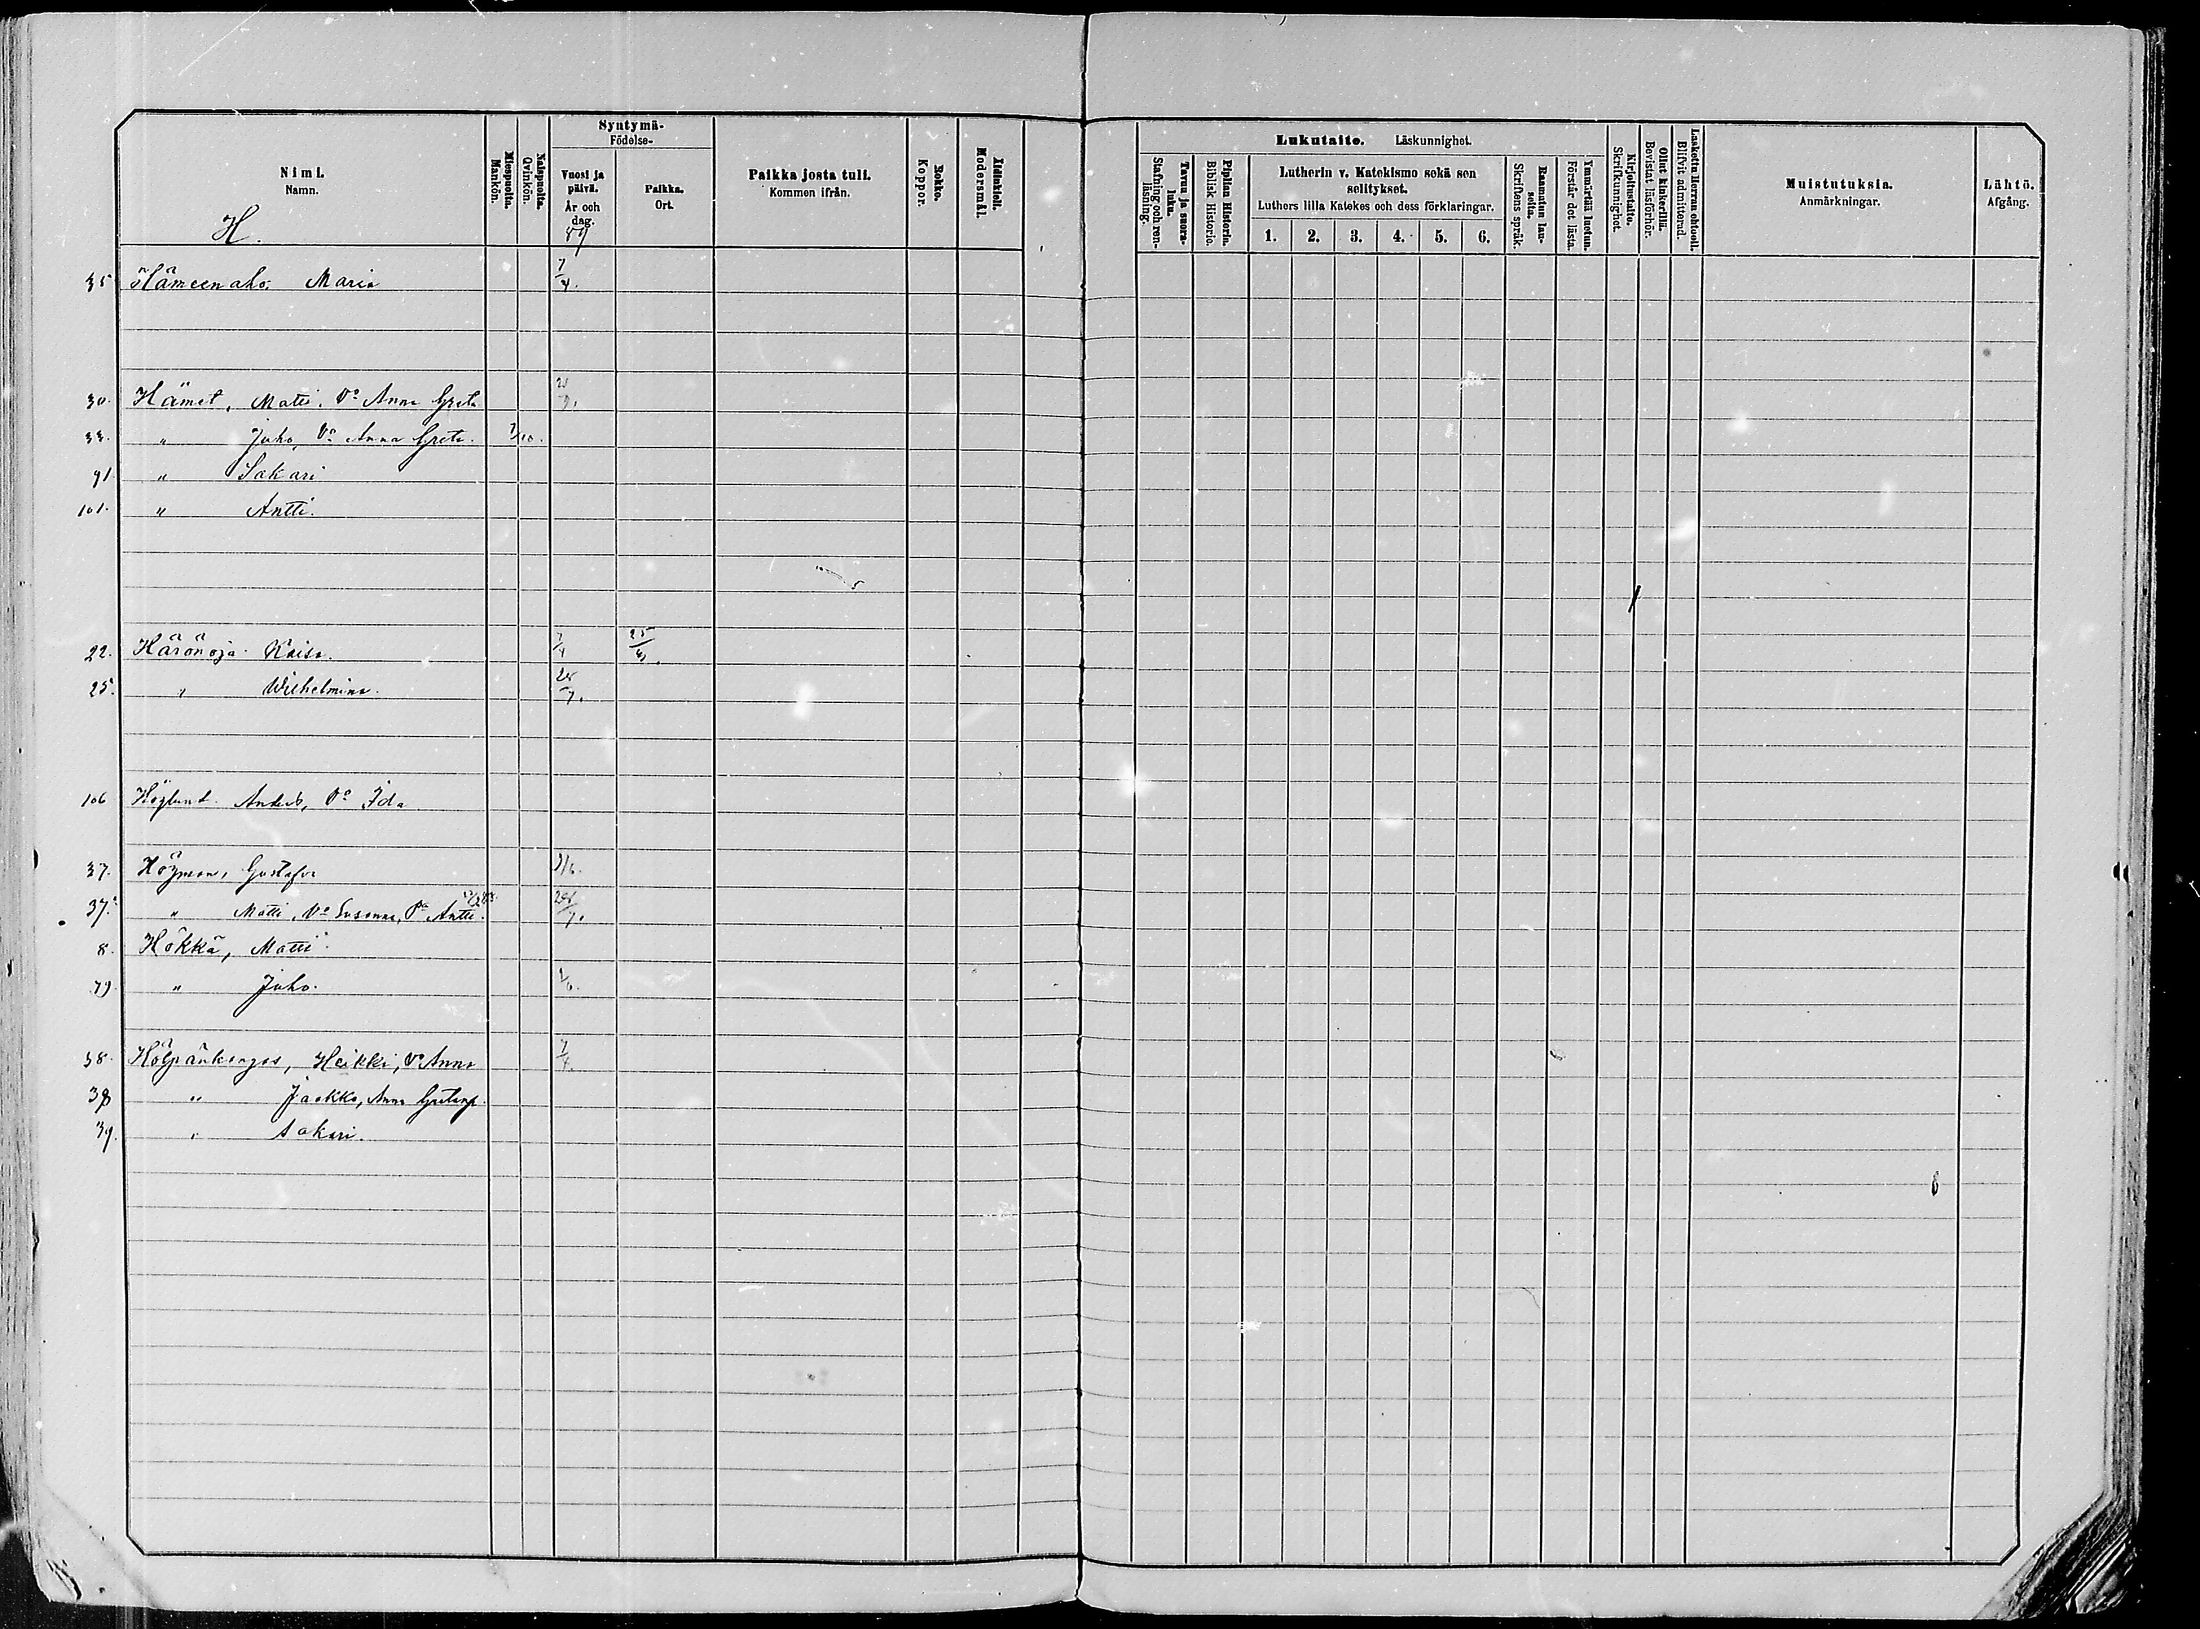 Nimi.
Namn.
H.
Miespuolia.
Mankön.
Naispuolia.
Qvinkön.
Syntymä-
Födelse-
Vuosi ja
päivä.
År och
dag.
89
Paikka.
Ort.
Paikka josta tuli.
Kommen ifrån.
Rokko.
Koppor.
Äidinkieli.
Modersmål.
Lukutaito. Läskunnighet.
Tavuu ja suora-
luku.
Stafning och ren-
läsning.
Piplian Historia.
Biblisk Historie.
Lutherin v. Katekismo sekä sen
selitykset.
Luthers lilla Katekes och dess förklaringar.
1. 2. 3. 4. 5. 6.
Raamatun lau-
seita.
Skriftens språk.
Ymmärtää luetun.
Förstår det lästa.
Kirjoitustaito.
Skrifkunnighet.
Ollut kinkerillä.
Bevistat läsförhör.
Laskettu Herran ehtooll.
Blifvit admitterad.
Muistutuksia.
Anmärkningar.
Lähtö.
Afgång.
35 Hämeenaho. Maria 7/4.
30. Hämet, Matti. Vo Anna Greta
33. " Juho, Vo Anna Greta. 7/10.
91 " Sakari
101. " Antti.
22. Häränoja. Kaisa. 7/4
25. " Wilhelmina. 28/7.
106 Höglund. Anders, Vo Ida
37. Högman, Gustafva 9/6.
37. " Matti, Vo Susanna, Po Antti. 28/7.
8. Hökkä, Matti
79. " Juho. 1/6.
38. Heikki, Vo Anna 7/4.
38 " Jaakko, Anna
39. " Sakari.